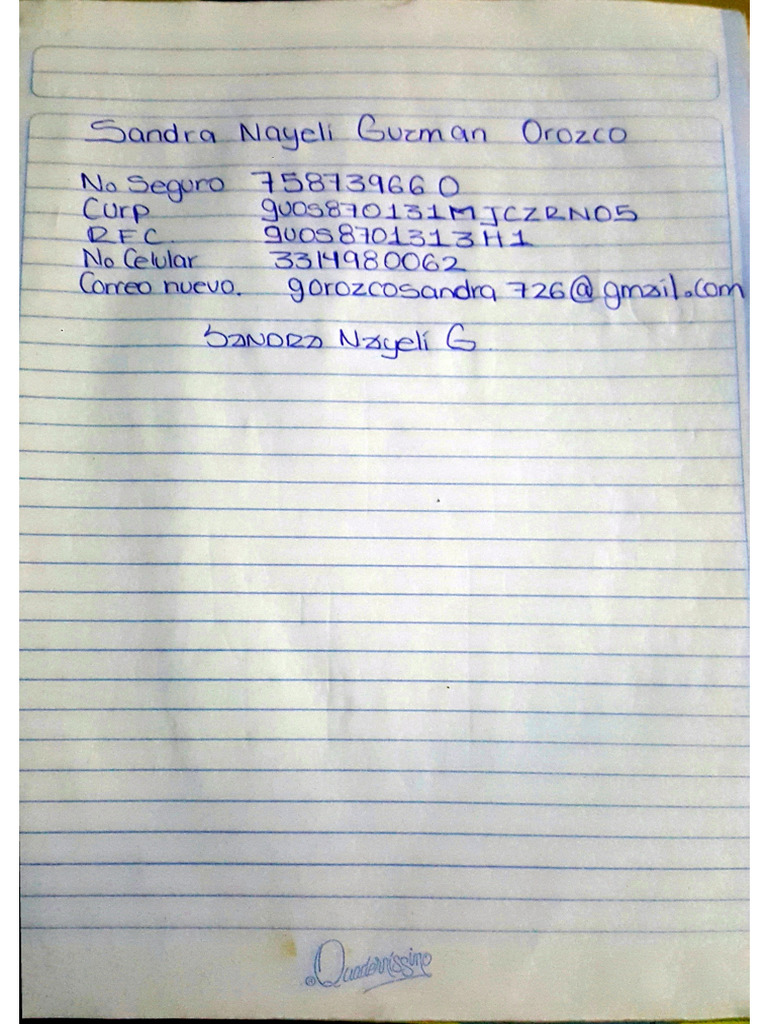 Sandra Nayeli Guzman Orozco
No Seguro 7587739660
Curp guos870131MJCZRN05
RFC. guos8701313H1
No Celular 3314980062
Correo nuevo. gorozcosandra726@gmail.com
Sandra Nayeli G.
Quadernissimo